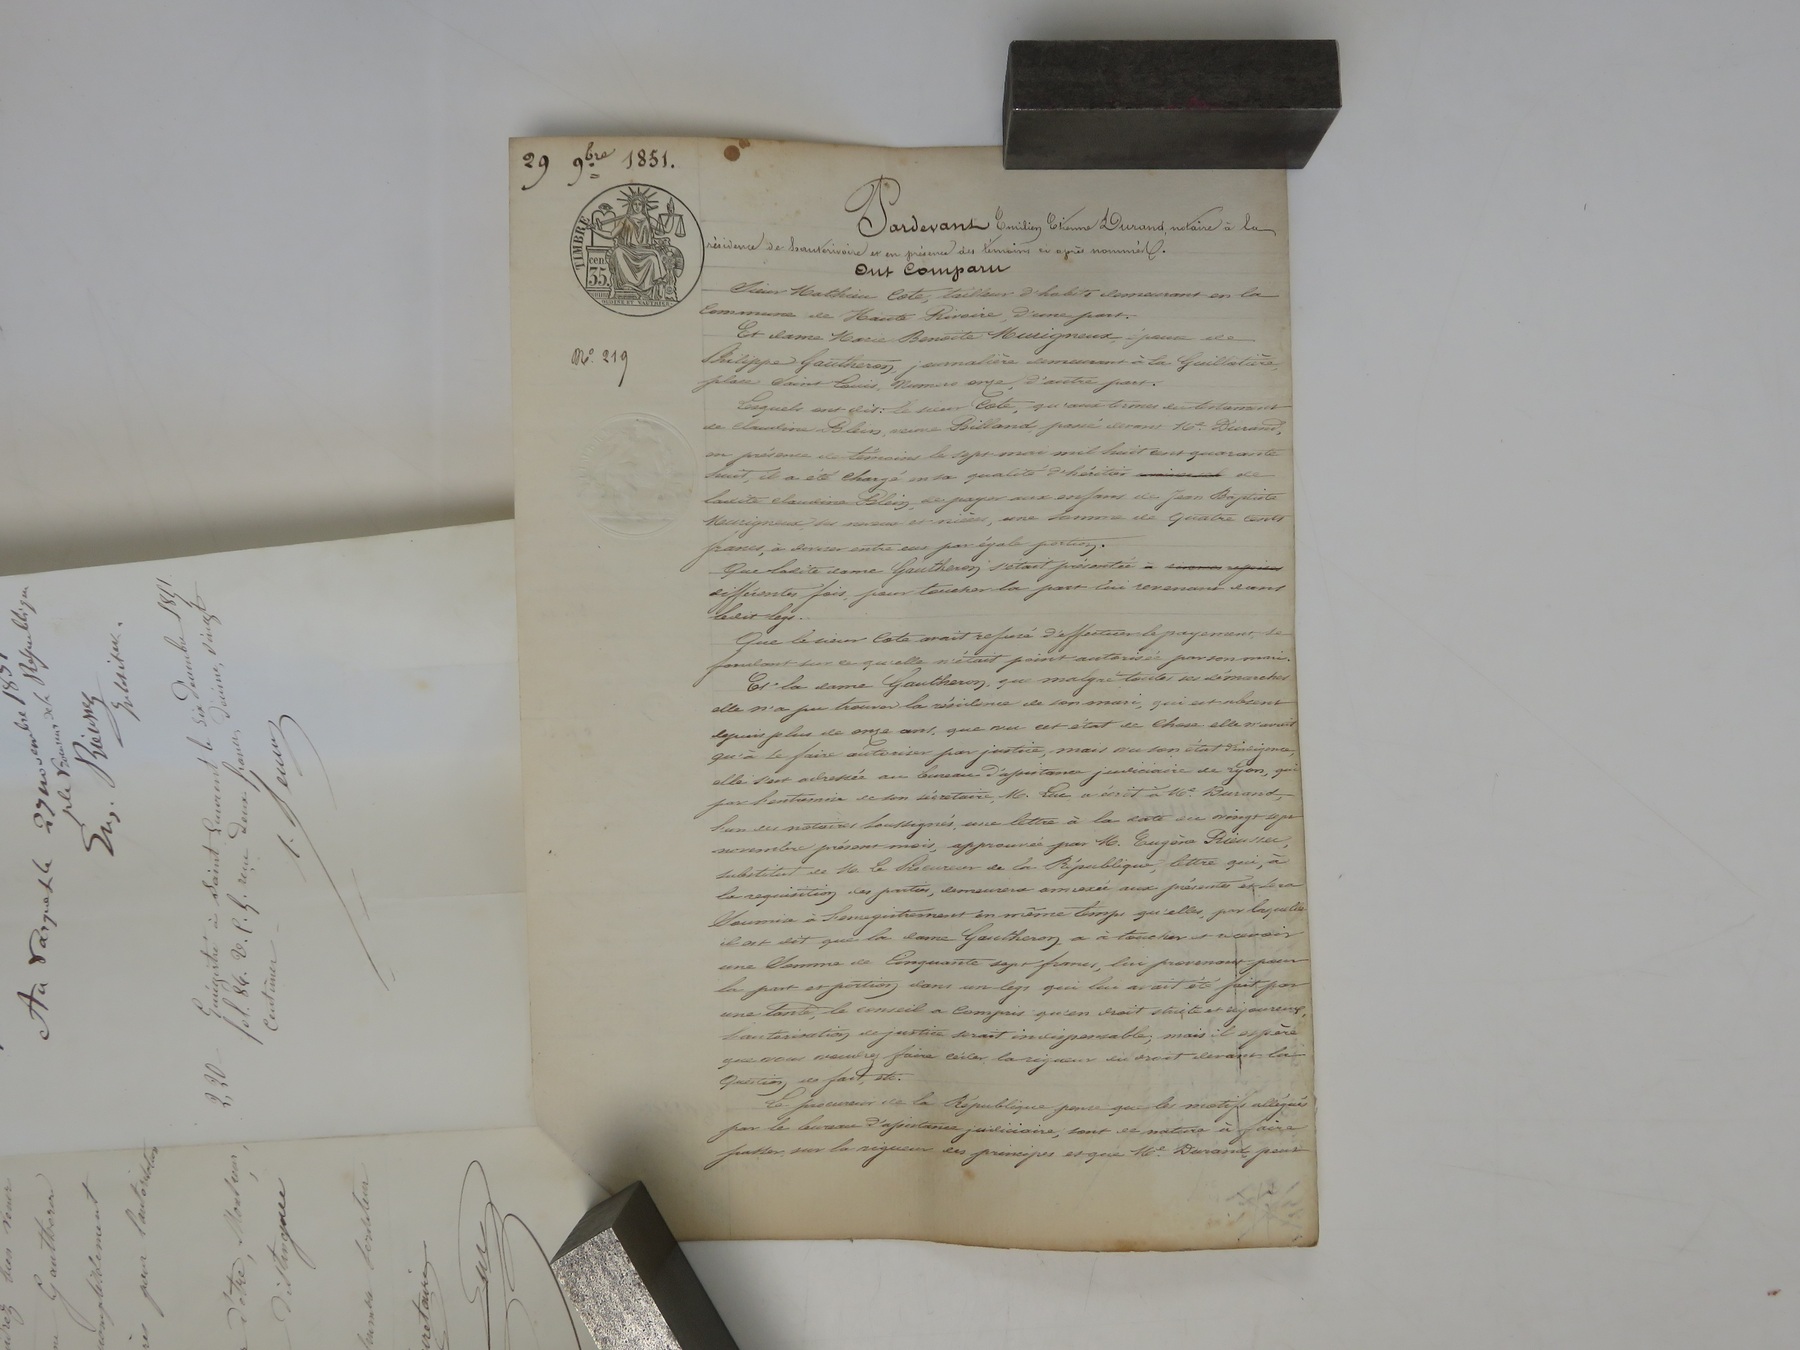 29 9bre 1851.
TIMBRE
cen
35
No. 219
Pardevant Emilien Etienne Durand, notaire à la
résidence de hauterivoire et en présence des témoins ci après nommés.
Ont Comparu
Sieur Mathieu Cote, tailleur d'habits demeurant en la
Commune de Haute Rivoire, d'une part.
Et dame Marie Benoite Murigneux, épouse de
Philippe Gautheron, journalière demeurant à la Guillotière,
place Saint Louis, Numero onze, d'autre part.
Lesquels ont dit: le sieur Cote, qu'aux termes du testament
de Claudine Blein, veuve Billand, passé devant Me Durand,
en présence de témoins le sept mai mil huit cent quarante
huit, il a été chargé en sa qualité d'héritier de
ladite Claudine Blein, de payer aux enfans de Jean Baptiste
Murigneux, ses neveux et nièces, une somme de quatre cents
francs, à diviser entre eux par égale portion.
Que ladite dame Gautheron s'était présentée à
différentes fois, pour toucher la part lui revenant dans
ledit legs.
Que le sieur Cote avait refusé d'effectuer le payement, se
fondant sur ce qu'elle n'était point autorisée par son mari.
Et la dame Gautheron, que malgré toutes ses démarches
elle n'a pu trouver la résidence de son mari, qui est absent
depuis plus de onze ans, que vu cet état de chose elle n'avait
qu'à se faire autoriser par justice, mais vu son état d'indigence,
elle s'est adressée au bureau d'assistance judiciaire de Lyon, qui
par l'entremise de son secrétaire, M. Luc a écrit à Me Durand,
l'un des notaires soussignés, une lettre à la date du vingt sept
novembre présent mois, approuvée par M. Eugène Rieussec,
substitut de M. le Procureur de la République, lettre qui, à
la requisition des parties, demeurera annexée aux présentes et sera
soumise à l'enregistrement en même temps qu'elles, par laquelle
il est dit que la dame Gautheron a à toucher et recevoir
une somme de Cinquante sept francs, lui provenant pour
la part et portion dans un legs qui lui avait été fait par
une tante, le conseil a compris qu'en droit stricte et rigoureux,
l'autorisation de justice serait indispensable, mais il espère
que vous voudrez faire céder la rigueur du droit devant la
question de fait, etc.
Le procureur de la République pense que les motifs allégués
par le bureau d'assistance judiciaire, sont de nature à faire
passer sur la rigueur des principes et que Me Durand, peut
Au Parquet le 27 novembre 1851
p le Procureur de la République
Eug. Rieussec
substitut.
2,20 Enregistré à Saint Laurent le six Décembre 1851.
fol. 86. V. C. 7. reçu deux francs, décime, vingt
centimes
Gautheron
complètement
pour l'autorisation
d'être, Monsieur,
distinguée